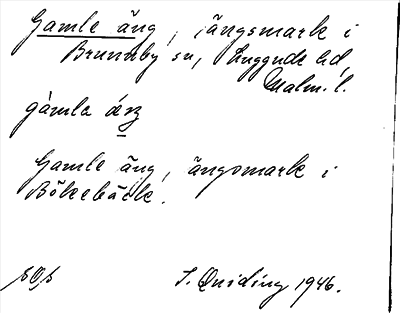 Gamle äng, ängsmark i
Brunnby sn, Luggude hd,
Malm. l.
gàmla áɛŋ
Gamle äng, ängsmark i
Bökebäck.
S. Qviding 1946.